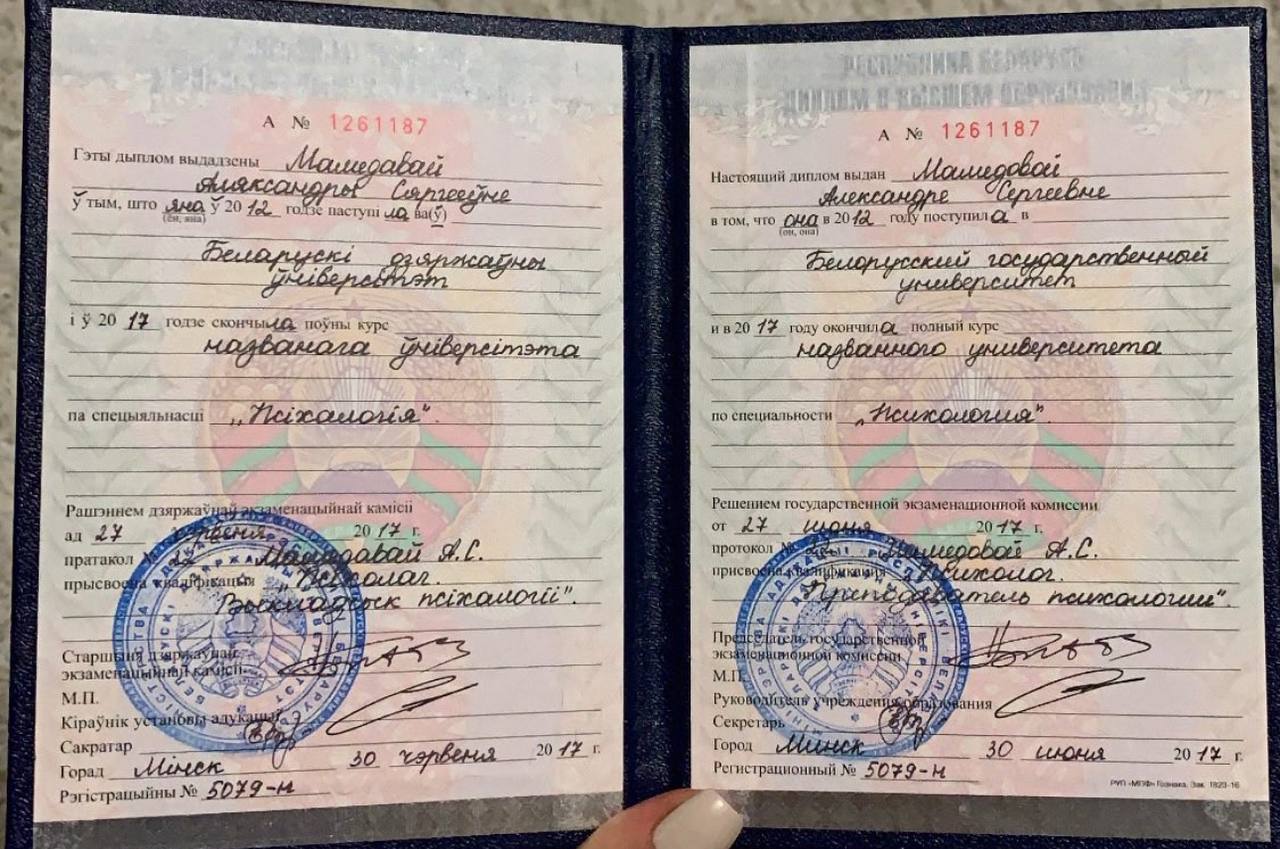 А № 1261187
Гэты дыплом выдадзены Мамедавай
Аляксандры Сяргееўне
ў тым, што яна ў 2012 годзе паступіла ва(ў)
(ён, яна)
Беларускі дзяржаўны
ўніверсітэт
і ў 2017 годзе скончыла поўны курс
названага ўніверсітэта
па спецыяльнасці „Псіхалогія".
Рашэннем дзяржаўнай экзаменацыйнай камісіі
ад 27 чэрвеня 2017 г.
пратакол № Мамедавай А.С.
прысвоена кваліфікацыя Псіхолаг.
Выкладчык псіхалогіі".
Старшыня дзяржаўнай
экзаменацыйнай камісіі
М.П.
Кіраўнік установы адукацыі
Сакратар
Горад Мінск 30 чэрвеня 2017 г.
Рэгістрацыйны № 5079-н
РЕСПУБЛИКА БЕЛАРУСЬ
А № 1261187
Настоящий диплом выдан Мамедовой
Александре Сергеевне
в том, что она в 2012 году поступила в
(он, она)
Белорусский государственный
университет
и в 2017 году окончила полный курс
названного университета
по специальности „Психология".
Решением государственной экзаменационной комиссии
от 27 июня 2017 г.
протокол № Мамедовой А.С.
присвоена квалификация Психолог.
Преподаватель психологии".
Председатель государственной
экзаменационной комиссии
М.П.
Руководитель учреждения образования
Секретарь
Город Минск 30 июня 2017 г.
Регистрационный № 5079-н
РУП «МПФ» Гознака. Зак. 1823-16